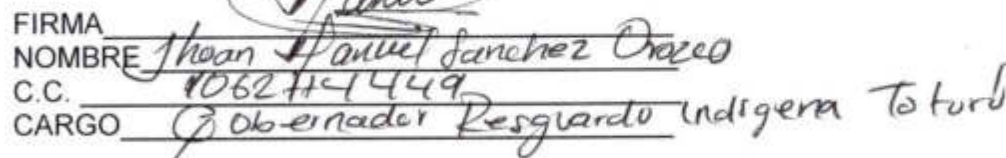 FIRMA
NOMBRE Jhoan Manuel Sanchez Orozco
C.C.
CARGO Gobernador Resguardo Indigena Totoró